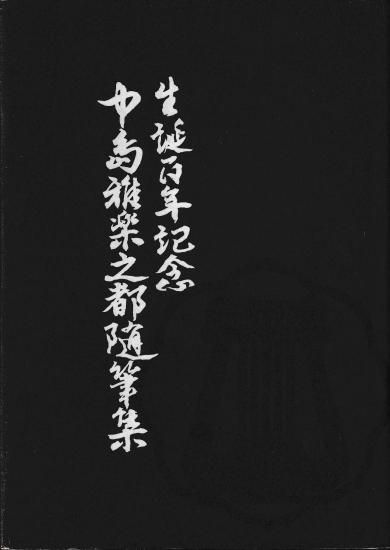 生誕百年記念
中島雅楽之都随筆集